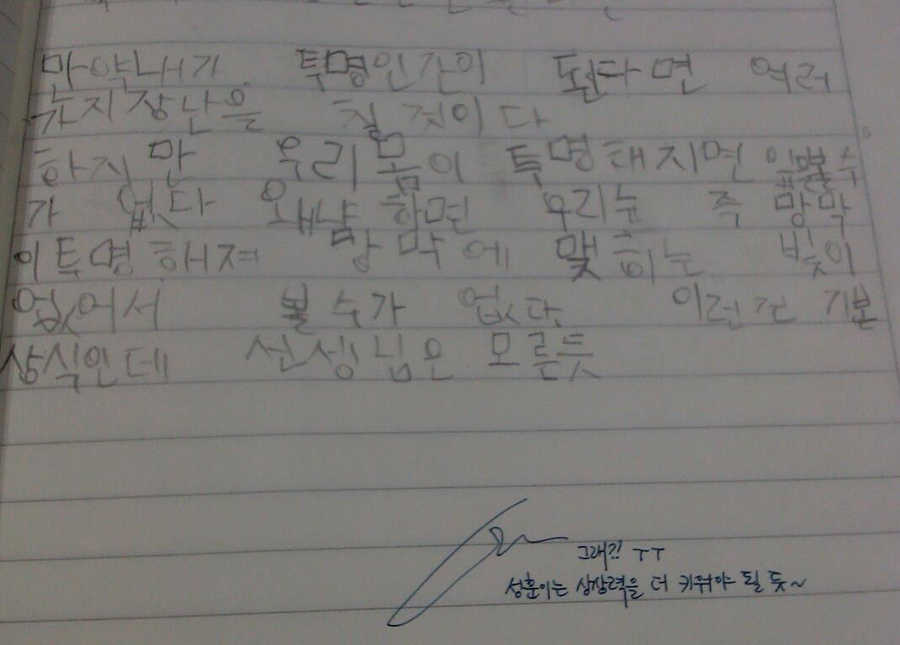 만약내가 투명인간이 된다면 여러
가지장난을 칠것이다
하지만 우리몸이 투명해지면 앞을볼수
가 없다 왜냠하면 우리눈 즉 망막
이투명해져 망막에 맺히는 빛이
없어서 볼수가 없다. 이런건 기본
상식인데 선생님은 모른듯
그래?! ㅜㅜ
성훈이는 상상력을 더 키워야 될 듯~